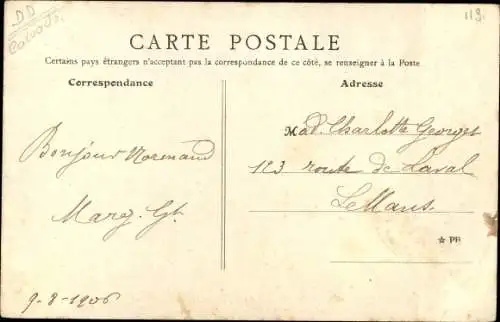 DD
Calvados
119
CARTE POSTALE
Certains pays étrangers n'acceptant pas la correspondance de ce côté, se renseigner à la Poste
Correspondance
Adresse
Bonjour Normand
Marg. Gt.
9-8-1906
Mad. Charlotte Georget
123 route de Laval
Le Mans
★ PB